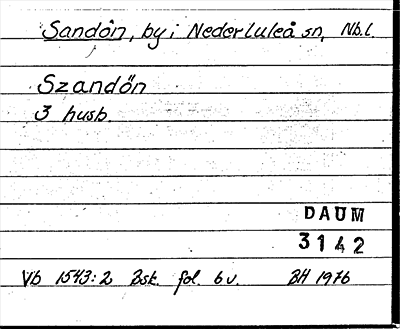 Sandön, by i Nederluleå sn, Nb.l.
Szandőn
3 husb.
DAUM
3142
Vb 1543:2 Bsk. fol. 6 v. BH 1976